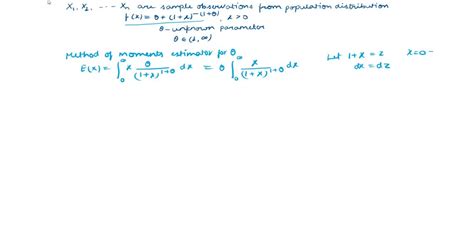 X₁, X₂, ... Xₙ are sample observations from population distribution
f(x) = θ + (1+x)^-(1+θ), x > 0
θ - unknown parameter
θ ∈ (1, ∞)
Method of moments estimator for θ
E(X) = ∫₀^∞ x θ/(1+x)^(1+θ) dx = θ ∫₀^∞ x/(1+x)^(1+θ) dx Let 1+x = z x=0 -
dx = dz